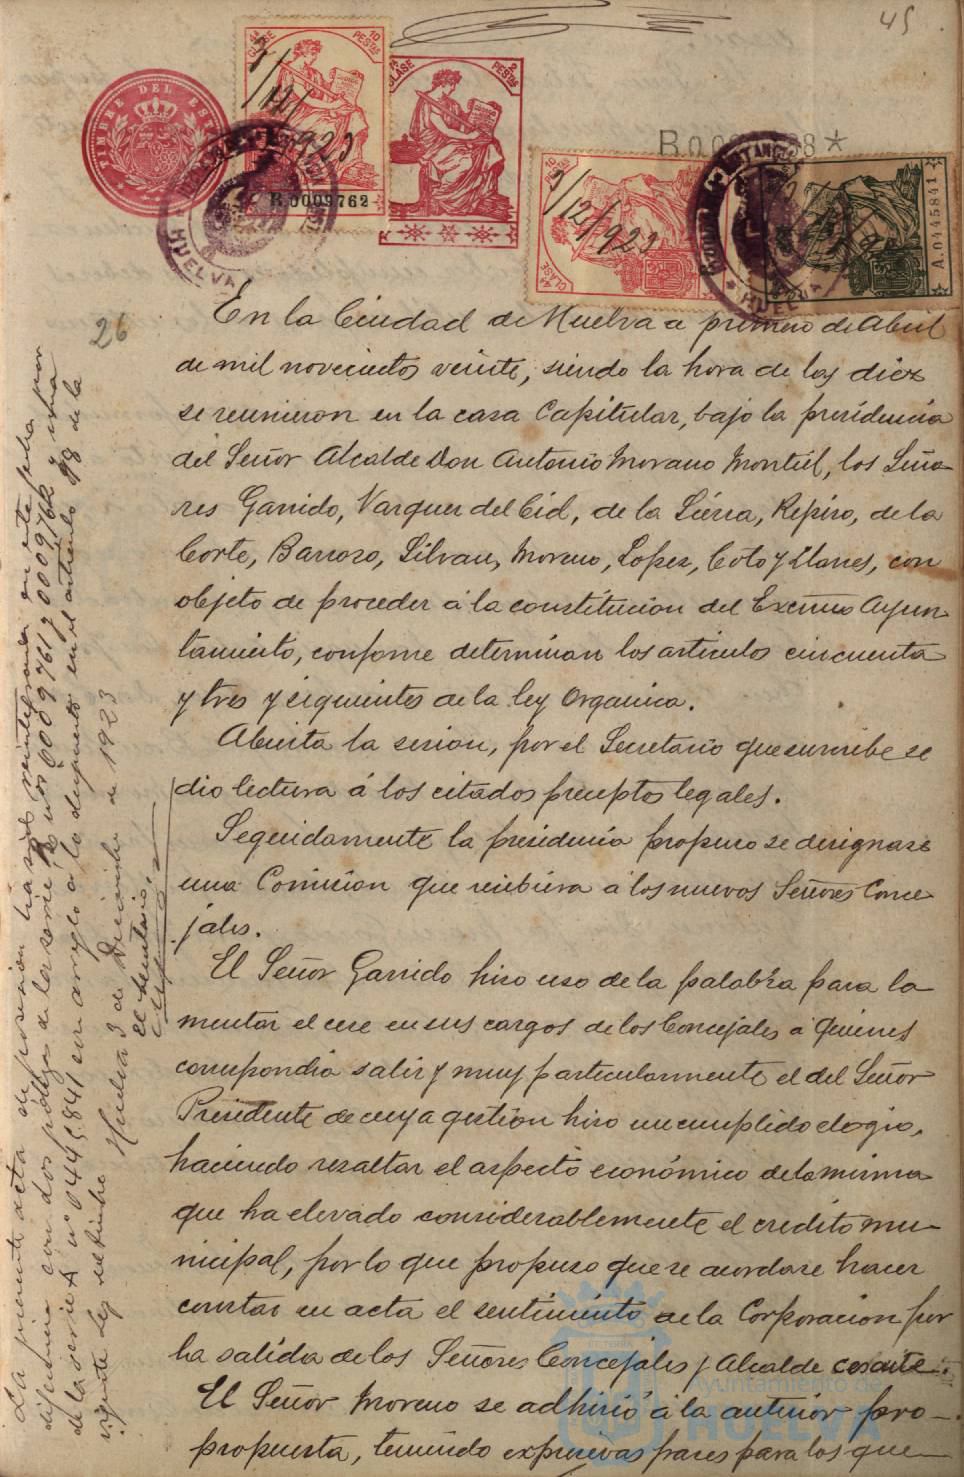 45
TIMBRE DEL ES
3ª CLASE 10 PESTAS
CLASE 2 PESTAS
3/12/1923
B.0009762
HUELVA
3/12/1923
CLASE
HUELVA
A.0445841
26
En la Ciudad de Huelva a primero de Abril
de mil novecientos veinte, siendo la hora de las diez
se reunieron en la casa Capitular, bajo la presidencia
del Señor Alcalde Don Antonio Morano Montiel, los Seño-
res Garrido, Vazquez del Cid, de la Sierra, Repiso, de la
Corte, Barroso, Silvan, Moreno, Lopez, Coto y Llanes, con
objeto de proceder á la constitucion del Excmo Ayun-
tamiento, conforme determinan los articulos cincuenta
y tres y siguientes de la ley Organica.
Abierta la sesion, por el Secretario que suscribe se
dio lectura á los citados preceptos legales.
Seguidamente la presidencia propuso se designase
una Comision que recibiera a los nuevos Señores Conce-
jales.
El Señor Garrido hiso uso de la palabra para la
mentar el cese en sus cargos de los Concejales á quienes
correspondia salir y muy particularmente el del Señor
Presidente de cuya gestion hiso un cumplido elogio,
haciendo resaltar el aspecto económico de la misma
que ha elevado considerablemente el credito mu-
nicipal, por lo que propuso que se acordase hacer
constar en acta el sentimiento de la Corporacion por
la salida de los Señores Concejales y Alcalde cesante.
El Señor Moreno se adhirió á la anterior pro-
propuesta, teniendo expresivas frases para los que
La presente acta de posesion ha sido reintegrada en esta fecha por
diferencia con dos pólizas de la serie B nos 0009761 y 0009762 y una
de la serie A nº 0445.841 con arreglo a lo dispuesto en el articulo 98 de la
vigente Ley del timbre Huelva 3 de Diciembre de 1923
El Secretario,
Ayuntamiento de
HUELVA